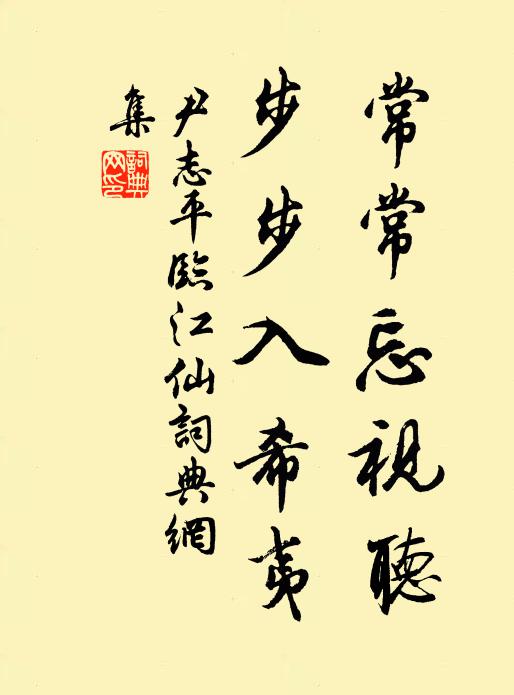 常常忘視聽
步步入希夷
尹志平臨江仙詞典網
集
詞典
网印